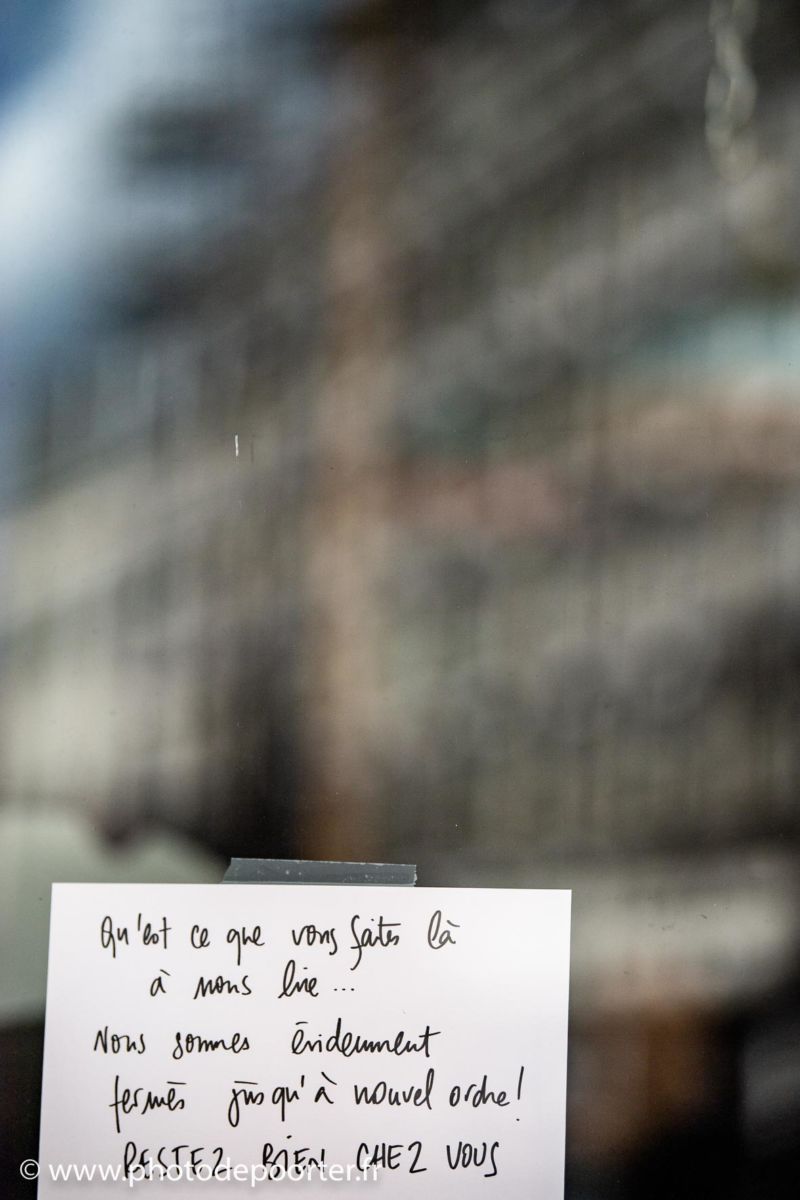 Qu'est ce que vous faites là
à nous lire...
Nous sommes évidemment
fermés jusqu'à nouvel ordre!
RESTEZ BIEN CHEZ VOUS
© www.photodepoorter.fr